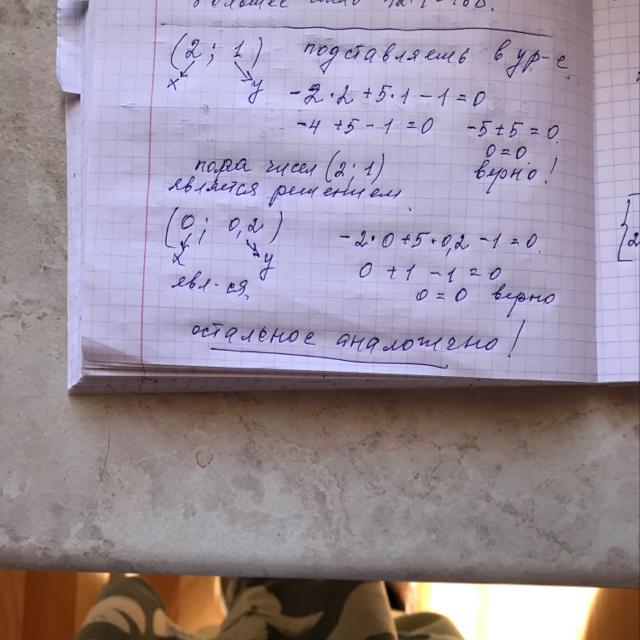 (2; 1) подставляешь в ур-е.
x y -2·2+5·1-1=0
-4+5-1=0 -5+5=0.
0=0.
пара чисел (2; 1) верно!
является решением.
(0; 0,2) -2·0+5·0,2-1=0.
x y 0+1-1=0
явл-ся. 0=0 верно
остальное аналожично!